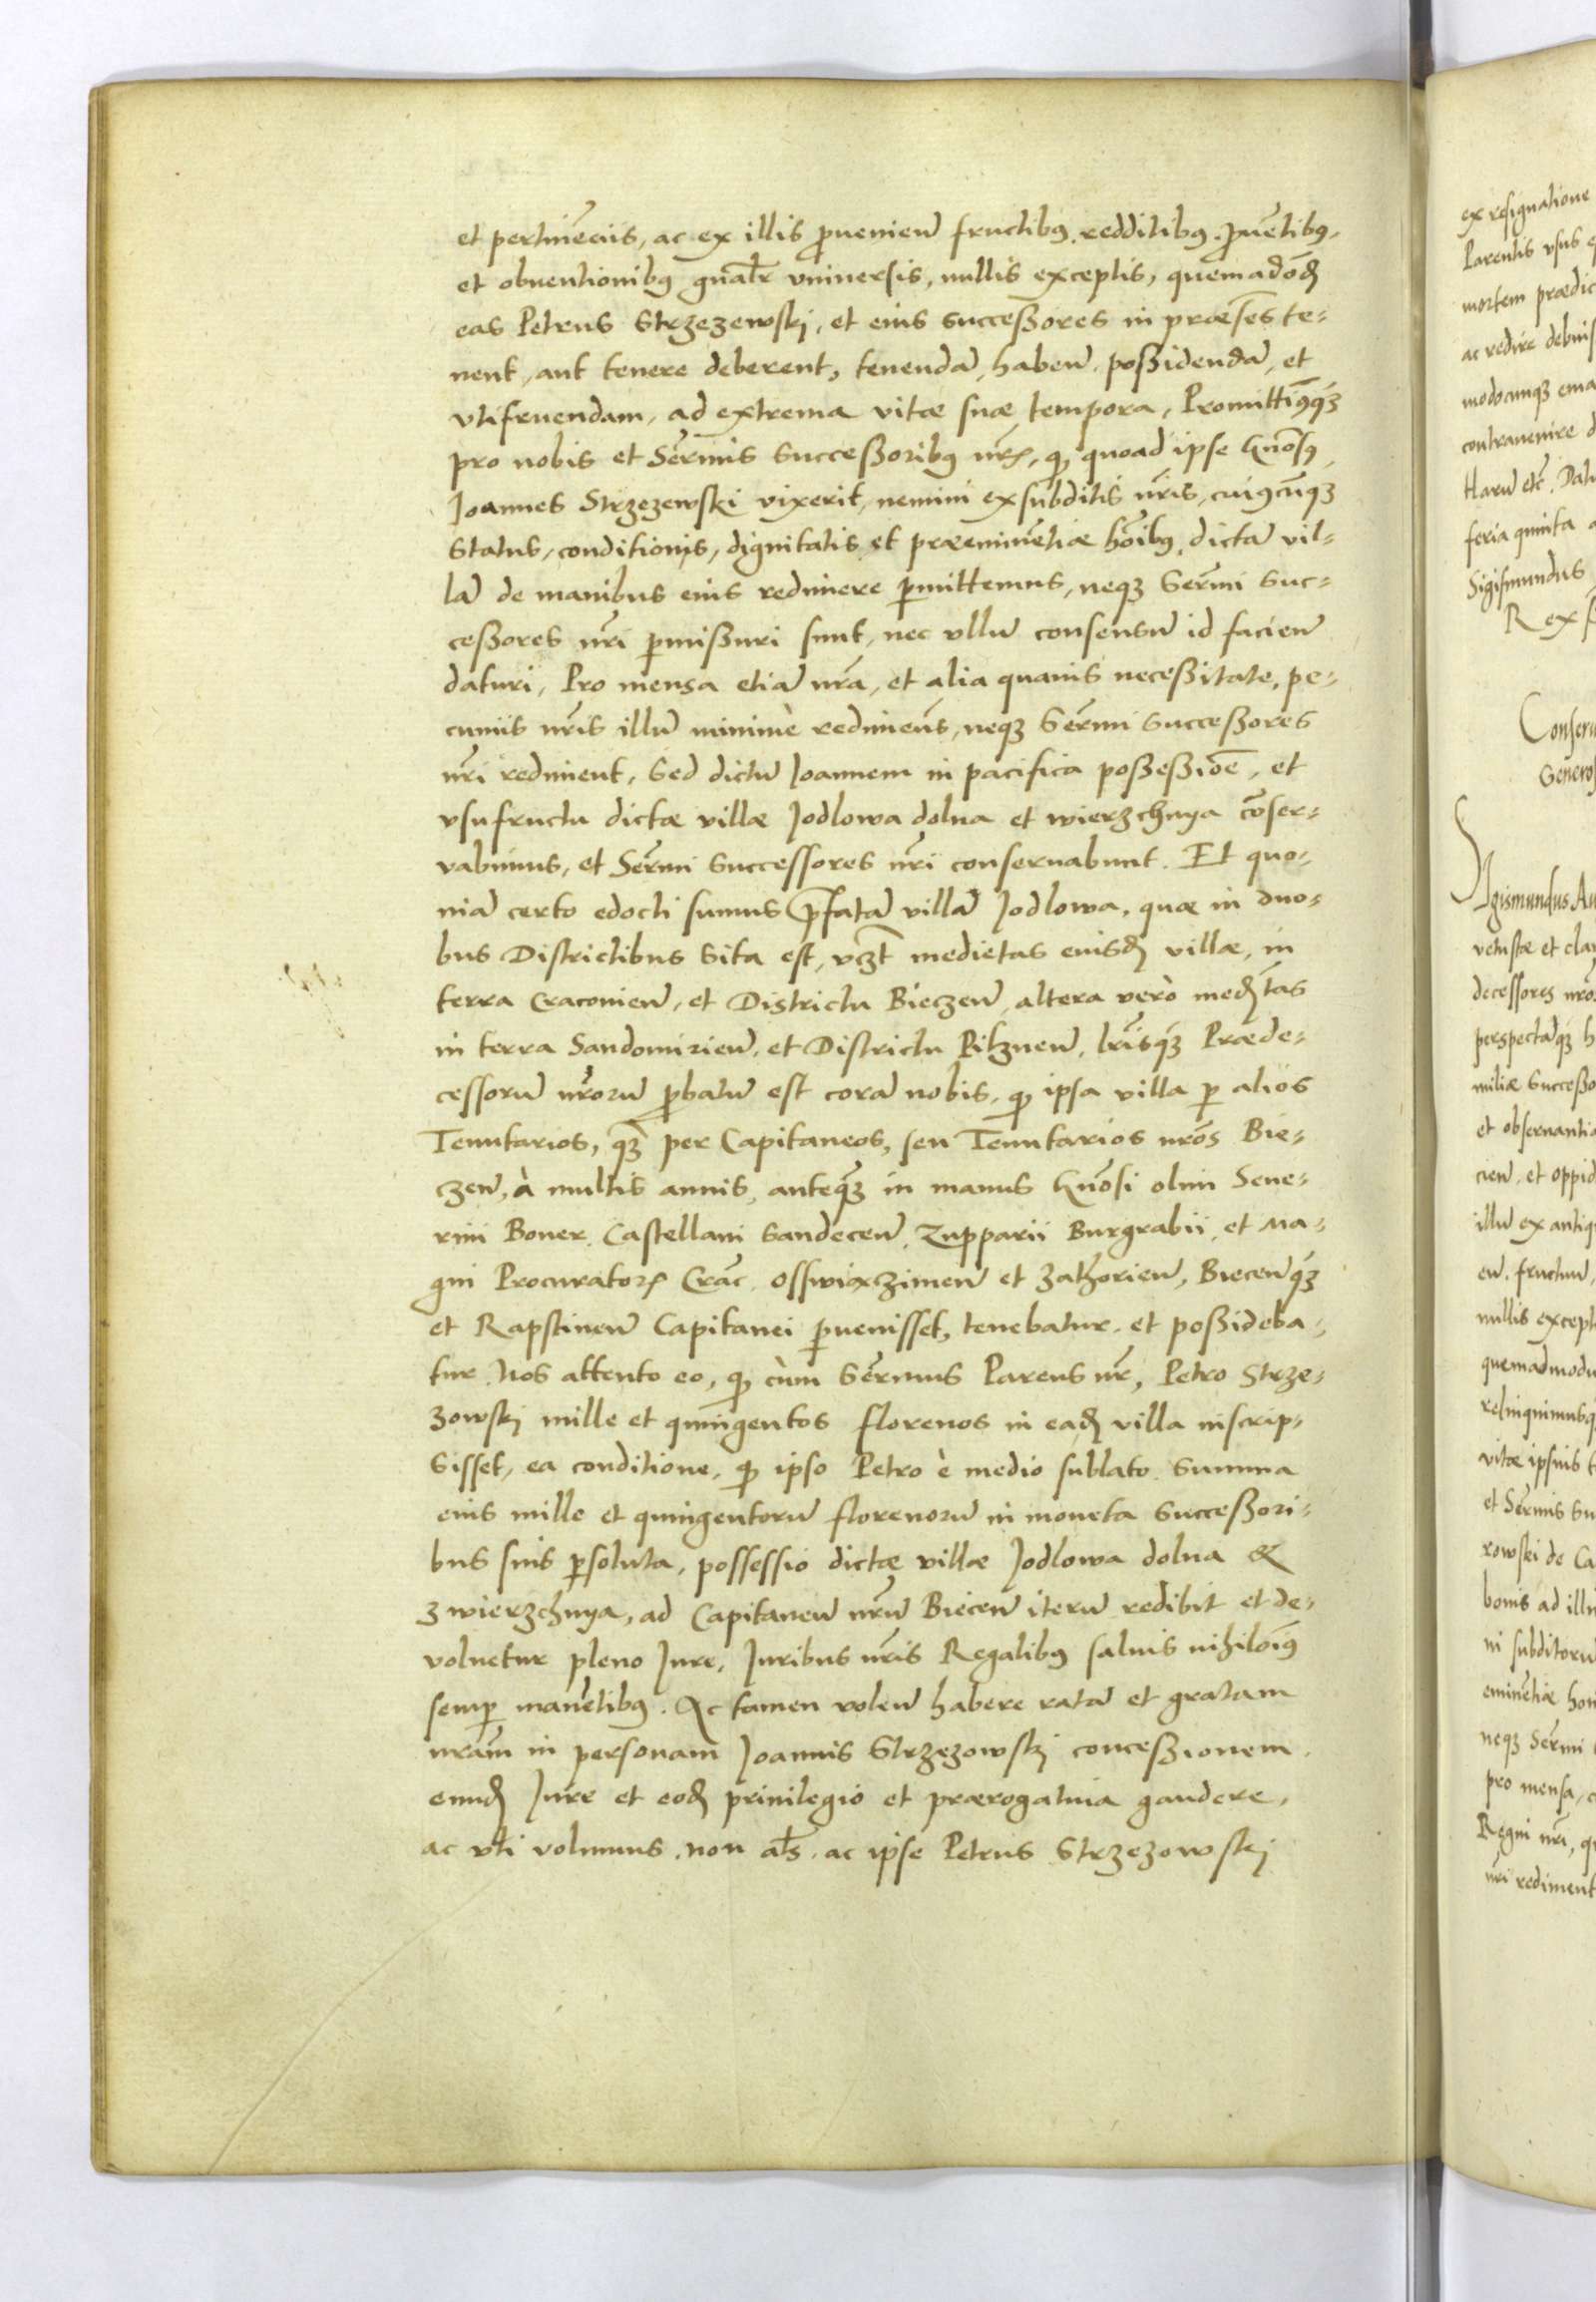 et pertinẽciis, ac ex illis ꝓvenień fructibꝰ, redditibꝰ, ꝓvẽtibꝰ,
et obventionibꝰ gnalr̃ vniversis, nullis exceptis, quemadõđ
eas Petrus Strzezewskj, et eius succeßores in præsẽs te-
nent, aut tenere deberent, tenendã, habeñ, poßidendã, et
vtifruendam, ad extrema vitæ suæ tempora, Promittim̃ꝰqꝫ
pro nobis et Serm̃is succeßoribꝰ nrꝭ, qꝫ quoad ipse gnõsꝰ
Joannes Strzezewski vixerit, nemini ex subditis nr̃is, cuiꝰcũqꝫ
status, conditionis, dignitatis et præeminẽtiæ hõibꝰ, dictã vil-
lã de manibus eius redimere ꝑmittemus, neqꝫ Serm̃i suc-
ceßores nr̃i ꝑmißuri sunt, nec vllũ consensũ id facień
daturi, Pro mensa etiã nr̃a, et alia quavis neceßitate, pe-
cuniis nr̃is illũ minimè redimem̃s, neqꝫ Serm̃i succeßores
nr̃i rediment, sed dictũ Joannem in pacifica poßeßiõe, et
vsufructu dictæ villæ Jodlowa dolna et wierzchnya cõser-
vabimus, et Serm̃i successores nr̃i conservabunt. Et quo-
niã certo edocti sumus p̃fatã villã Jodlowa, quæ in duo-
bus Districtibus sita est, vꝫt medietas eiusđ villæ, in
terra Cracovień, et Districtu Bieczeń, altera verò međtas
in terra Sandomirień, et Districtu Pilzneń, lr̃isqꝫ Præde-
cessorũ nr̃orũ ꝓbatũ est corã nobis, qꝫ ipsa villa ꝑ alios
Tenutarios, qꝫ per Capitaneos, seu Tenutarios nr̃os Bie-
czeń, à multis annis, anteqꝫ in manus gnõsi olim Seve-
rini Boner, Castellani Sandeceń, Zupparii Burgrabii, et Ma-
gni Procuratorꝭ Crac̃, osswiæczimeń et Zathorień, Bieceńqꝫ
et Rapstineń Capitanei ꝑvenisset, tenebatur, et poßideba-
tur, Nos attento eo, qꝫ cùm Serm̃us Parens nr̃, Petro Strze-
zowskj mille et quingentos florenos in eađ villa inscrip-
sisset, ea conditione, qꝫ ipso Petro è medio sublato summa
eius mille et quingentorũ florenorũ in moneta succeßori-
bus suis ꝑsoluta, possessio dictæ villæ Jodlowa dolna &
zwierzchnya, ad Capitaneũ nr̃um Bieceń iterũ redibit et de-
volvetur pleno Jure, Juribus nr̃is Regalibꝰ salvis nihilõiꝰ
semꝑ manẽtibꝰ. Ac tamen volen̄ habere ratã et gratam
nr̃am in personam Joannis Strzezowskj conceßionem,
eunđ Jure et eođ privilegio et prærogativa gaudere,
ac vti volumus, non al̃s, ac ipse Petrus Strzezowskj
ex resignatione
Parentis vsus
mortem prædic
ac redire debuis
modocunqꝫ ema
contravenire
Harũ etc̃. Datũ
feria quinta
Sigismundus
Rex
Conserv
Generos
Sigismundus Au
vetustæ et clar
decessores nr̃o
perspectãqꝫ h
miliæ Succeßo
et observantia
cień, et oppid
illũ ex antiq
eń, fructuũ,
nullis except
quemadmodũ
relinquimusq
vitæ ipsius
et Serm̃is su
rowski de Ca
bonis ad illũ
ni subditorũ
eminẽtiæ hom
neqꝫ Serm̃i
pro mensa,
Regni nr̃i, q
nr̃i rediment